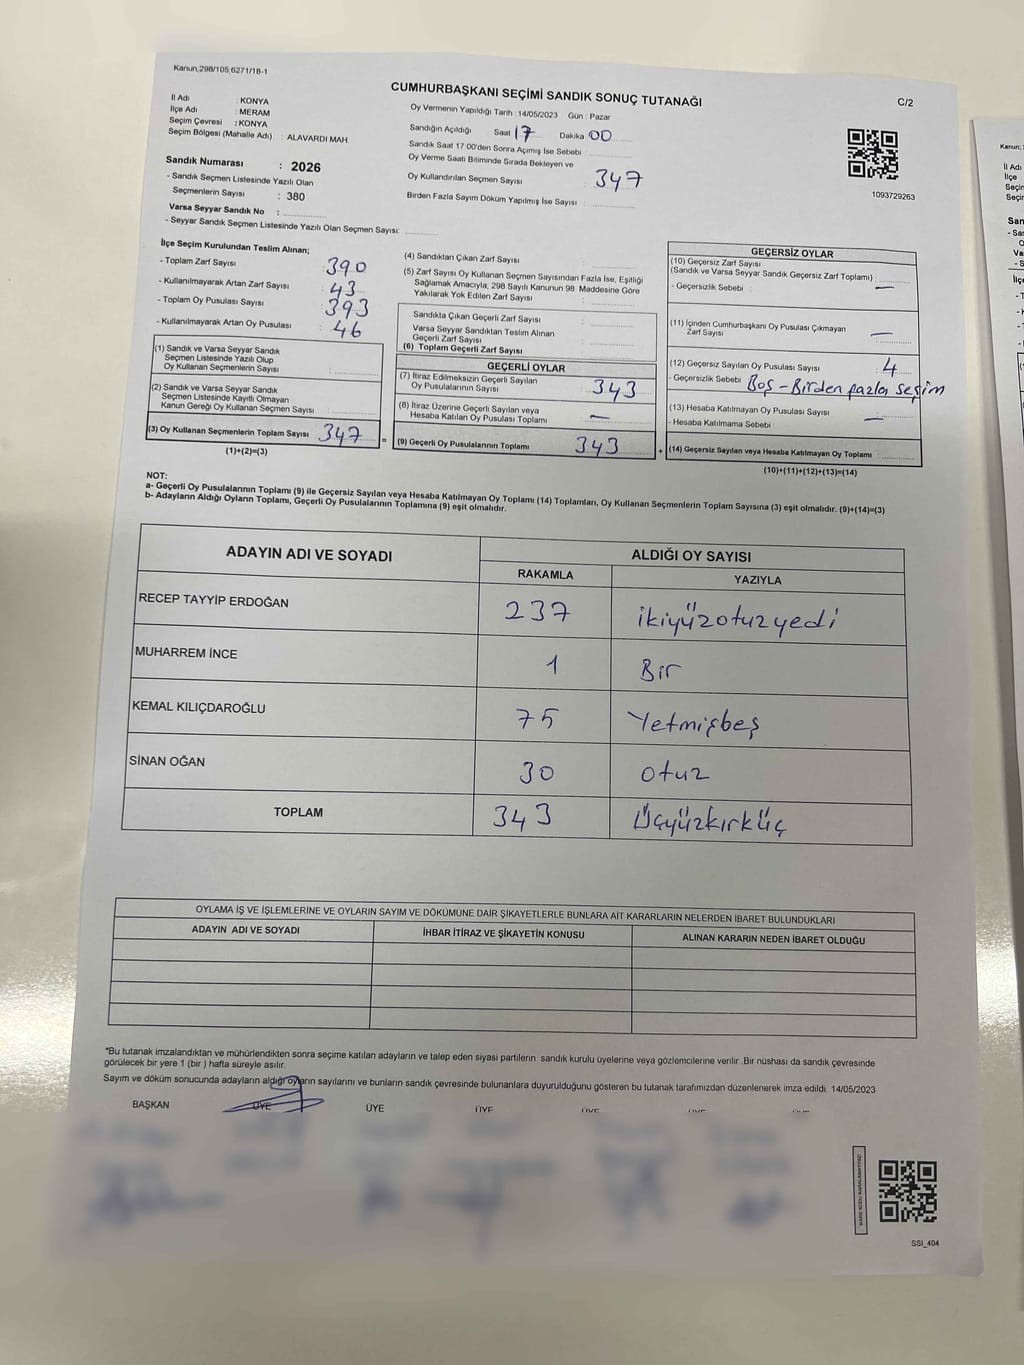 Kanun,298/105,6271/18-1
CUMHURBAŞKANI SEÇİMİ SANDIK SONUÇ TUTANAĞI
C/2
İl Adı : KONYA
İlçe Adı : MERAM
Seçim Çevresi : KONYA
Seçim Bölgesi (Mahalle Adı) : ALAVARDI MAH.
Sandık Numarası : 2026
- Sandık Seçmen Listesinde Yazılı Olan
Seçmenlerin Sayısı : 380
Varsa Seyyar Sandık No :
- Seyyar Sandık Seçmen Listesinde Yazılı Olan Seçmen Sayısı:
Oy Vermenin Yapıldığı Tarih : 14/05/2023 Gün : Pazar
Sandığın Açıldığı Saat 17 Dakika 00
Sandık Saat 17 00'den Sonra Açımış İse Sebebi
Oy Verme Saati Bitiminde Sırada Bekleyen ve
Oy Kullandırılan Seçmen Sayısı : 347
Birden Fazla Sayım Döküm Yapılmış İse Sayısı :
1093729263
İlçe Seçim Kurulundan Teslim Alınan;
- Toplam Zarf Sayısı : 390
- Kullanılmayarak Artan Zarf Sayısı : 43
- Toplam Oy Pusulası Sayısı : 393
- Kullanılmayarak Artan Oy Pusulası : 46
(1) Sandık ve Varsa Seyyar Sandık
Seçmen Listesinde Yazılı Olup
Oy Kullanan Seçmenlerin Sayısı :
(2) Sandık ve Varsa Seyyar Sandık
Seçmen Listesinde Kayıtlı Olmayan
Kanun Gereği Oy Kullanan Seçmen Sayısı :
(3) Oy Kullanan Seçmenlerin Toplam Sayısı : 347
(1)+(2)=(3)
=
(4) Sandıktan Çıkan Zarf Sayısı :
(5) Zarf Sayısı Oy Kullanan Seçmen Sayısından Fazla İse, Eşitliği
Sağlamak Amacıyla, 298 Sayılı Kanunun 98. Maddesine Göre
Yakılarak Yok Edilen Zarf Sayısı :
Sandıkta Çıkan Geçerli Zarf Sayısı :
Varsa Seyyar Sandıktan Teslim Alınan
Geçerli Zarf Sayısı :
(6) Toplam Geçerli Zarf Sayısı :
GEÇERLİ OYLAR
(7) İtiraz Edilmeksizin Geçerli Sayılan
Oy Pusulasının Sayısı : 343
(8) İtiraz Üzerine Geçerli Sayılan veya
Hesaba Katılan Oy Pusulası Toplamı : —
(9) Geçerli Oy Pusulalarının Toplamı : 343
+
GEÇERSİZ OYLAR
(10) Geçersiz Zarf Sayısı
(Sandık ve Varsa Seyyar Sandık Geçersiz Zarf Toplamı) :
- Geçersizlik Sebebi : —
(11) İçinden Cumhurbaşkanı Oy Pusulası Çıkmayan
Zarf Sayısı : —
(12) Geçersiz Sayılan Oy Pusulası Sayısı : 4
- Geçersizlik Sebebi : Boş - Birden fazla seçim
(13) Hesaba Katılmayan Oy Pusulası Sayısı : —
- Hesaba Katılmama Sebebi
(14) Geçersiz Sayılan veya Hesaba Katılmayan Oy Toplamı :
(10)+(11)+(12)+(13)=(14)
NOT:
a- Geçerli Oy Pusulalarının Toplamı (9) ile Geçersiz Sayılan veya Hesaba Katılmayan Oy Toplamı (14) Toplamları, Oy Kullanan Seçmenlerin Toplam Sayısına (3) eşit olmalıdır. (9)+(14)=(3)
b- Adayların Aldığı Oyların Toplamı, Geçerli Oy Pusulalarının Toplamına (9) eşit olmalıdır.
ADAYIN ADI VE SOYADI
ALDIĞI OY SAYISI
RAKAMLA YAZIYLA
RECEP TAYYİP ERDOĞAN 237 ikiyüzotuzyedi
MUHARREM İNCE 1 Bir
KEMAL KILIÇDAROĞLU 75 Yetmişbeş
SİNAN OĞAN 30 otuz
TOPLAM 343 Üçyüzkırküç
OYLAMA İŞ VE İŞLEMLERİNE VE OYLARIN SAYIM VE DÖKÜMÜNE DAİR ŞİKAYETLERLE BUNLARA AİT KARARLARIN NELERDEN İBARET BULUNDUKLARI
ADAYIN ADI VE SOYADI İHBAR İTİRAZ VE ŞİKAYETİN KONUSU ALINAN KARARIN NEDEN İBARET OLDUĞU
*Bu tutanak imzalandıktan ve mühürlendikten sonra seçime katılan adayların ve talep eden siyasi partilerin sandık kurulu üyelerine veya gözlemcilerine verilir. Bir nüshası da sandık çevresinde
görülecek bir yere 1 (bir ) hafta süreyle asılır.
Sayım ve döküm sonucunda adayların aldığı oyların sayılarını ve bunların sandık çevresinde bulunanlara duyurulduğunu gösteren bu tutanak tarafımızdan düzenlenerek imza edildi. 14/05/2023
BAŞKAN ÜYE ÜYE ÜYE ÜYE ÜYE ÜYE
SSI_404